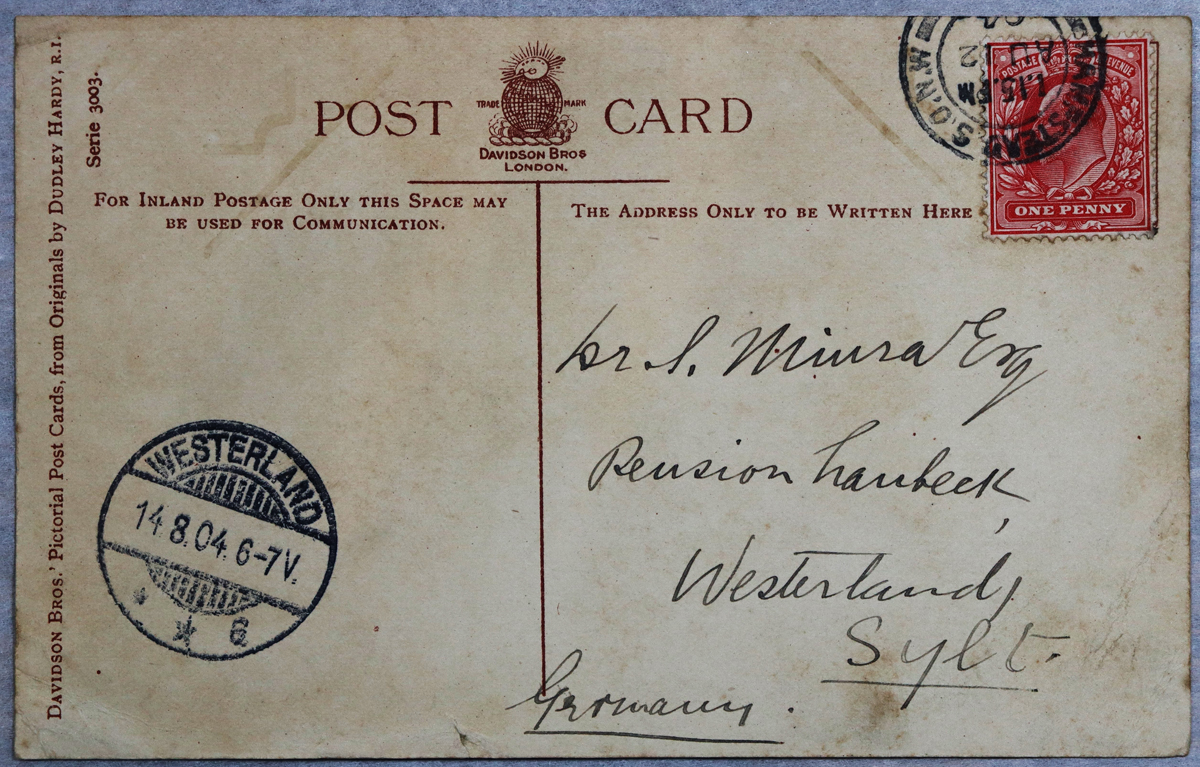 POST CARD
TRADE MARK
DAVIDSON BROS
LONDON.
FOR INLAND POSTAGE ONLY THIS SPACE MAY
BE USED FOR COMMUNICATION.
THE ADDRESS ONLY TO BE WRITTEN HERE
DAVIDSON BROS.' Pictorial Post Cards, from Originals by DUDLEY HARDY, R.I.
Serie 3003.
POSTAGE REVENUE
ONE PENNY
S.O.N.W
1.15 PM
AU 12
04
S. Miura Esq
Pension
Westerland,
Sylt.
Germany.
WESTERLAND
14.8.04. 6-7V.